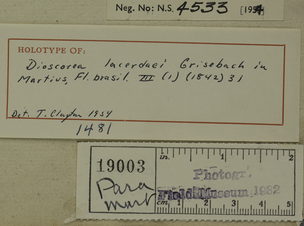 Neg. No: N.S. 4533 [1954
HOLOTYPE OF:
Dioscorea lacerdaei Grisebach in
Martius, Fl. brasil. III (1) (1842) 31
Det. T. Clayton 1954
1481
19003
Para
mart
in.
Photogr.
Field Museum 1982
cm 1 2 3 4 5